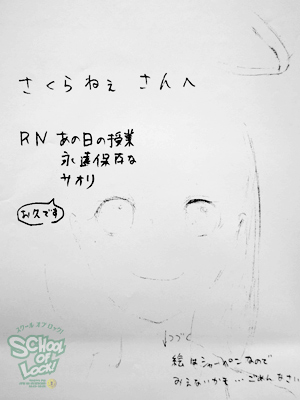 さくらねぇ さんへ
RN あの日の授業
永遠保存な
サオリ
お久です
つづく
絵はシャーペンなので
みえないかも…ごめんなさい
スクール オブ ロック!
SCHOOL
OF
LOCK!